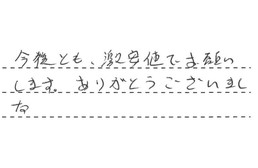 今後とも、激安値でお願い
します。ありがとうございまし
た